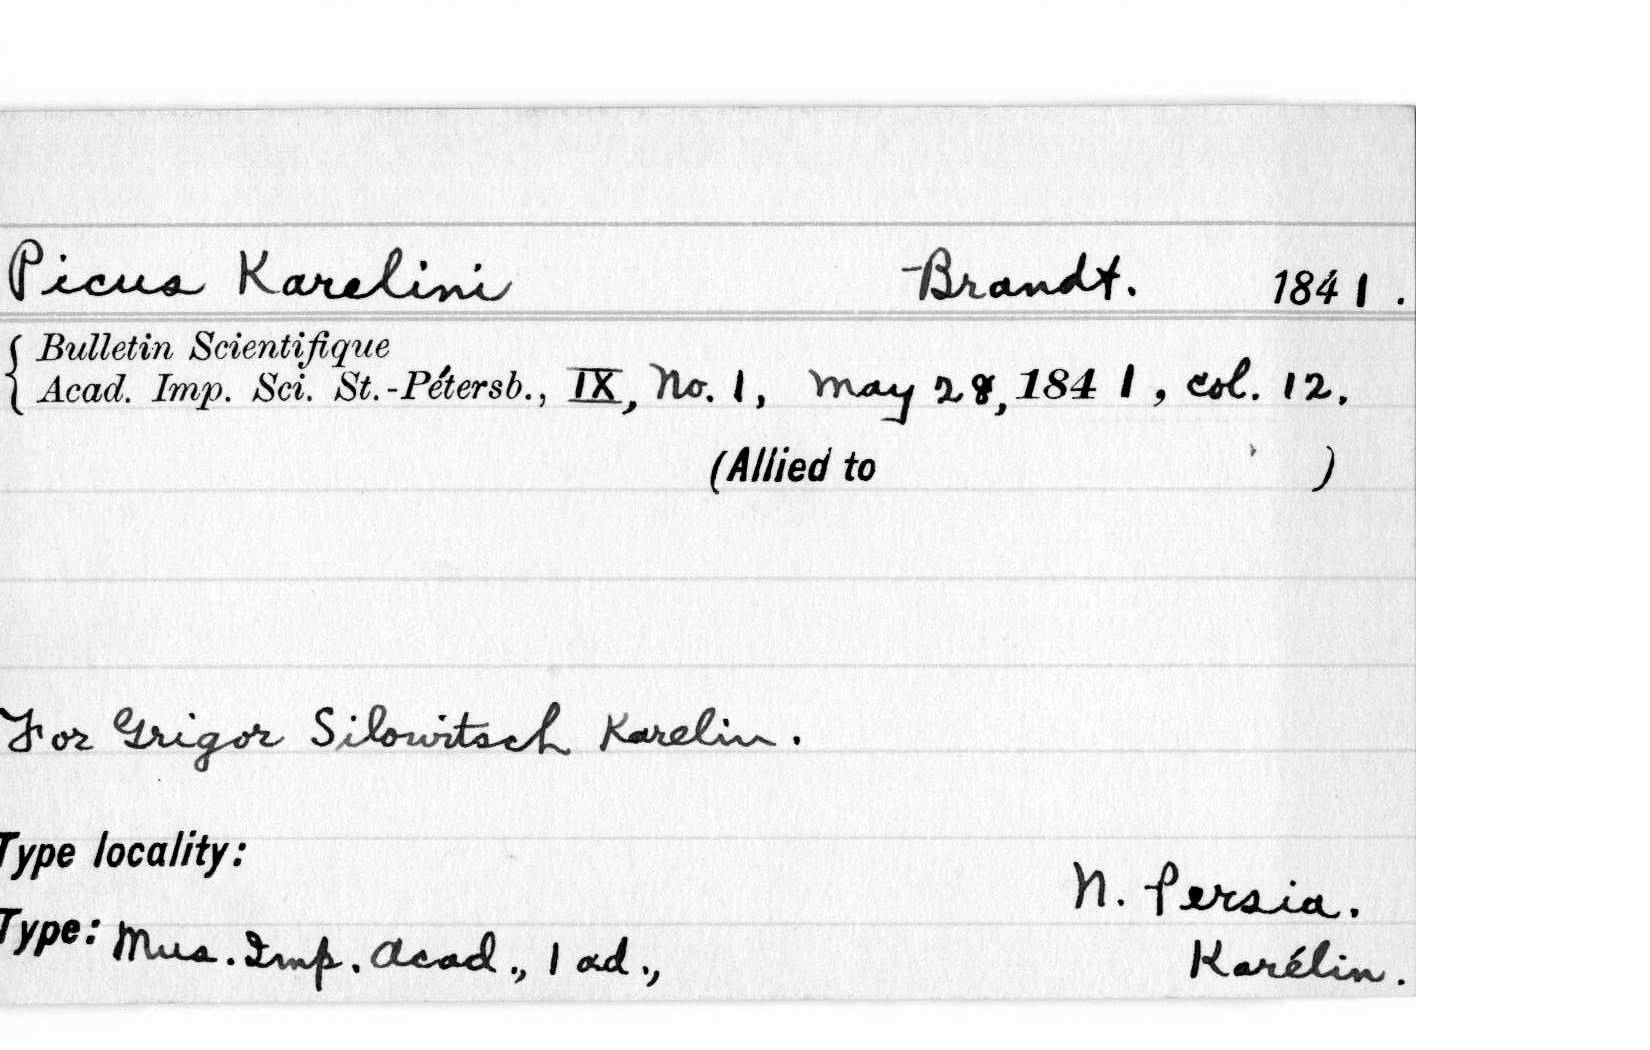 Picus Karelini Brandt. 1841.
Bulletin Scientifique
Acad. Imp. Sci. St.-Pétersb., IX, No. 1, May 28, 1841, col. 12.
(Allied to )
For Grigor Silowitsch Karelin.
Type locality:
N. Persia.
Type: Mus. Imp. Acad., 1 ad., Karélin.